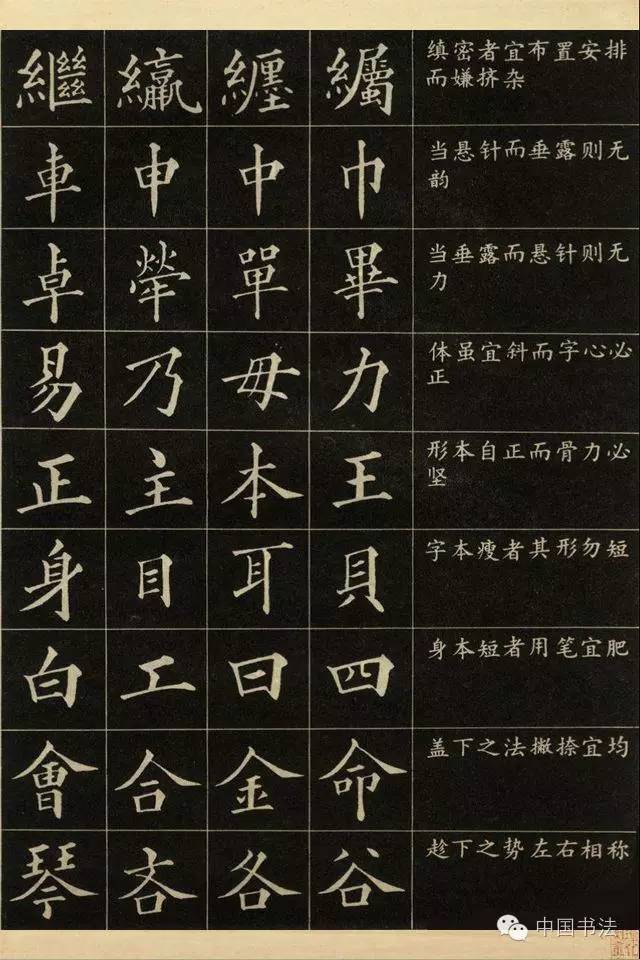 繼 纏
缜密者宜布置安排
而嫌挤杂
車 申 中 巾
当悬针而垂露则无
韵
卓 犖 單 畢
当垂露而悬针则无
力
易 乃 毋 力
体虽宜斜而字心必
正
正 主 本 王
形本自正而骨力必
坚
身 目 耳 貝
字本瘦者其形勿短
白 工 曰 四
身本短者用笔宜肥
會 合 金 命
盖下之法撇捺宜均
琴 吝 各 谷
趁下之势左右相称
中国书法